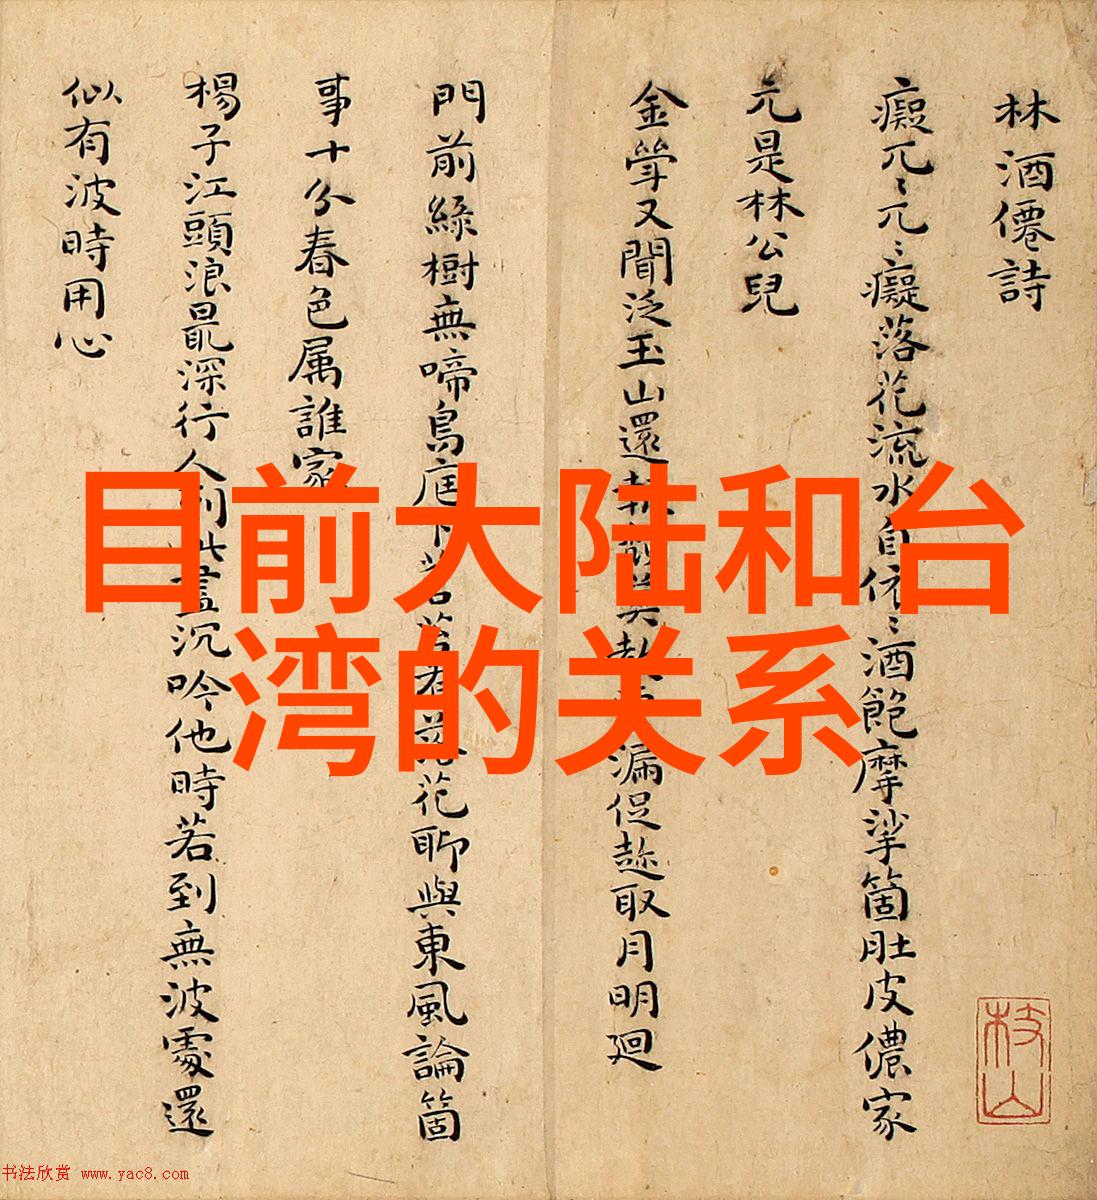 林酒僊詩
癡兀〻兀〻癡落花流水自依〻酒飽摩挲箇肚皮儂家
元是林公兒
金聲又聞泛玉山還
漏促趂取月明廻
門前綠樹無啼鳥庭下
花聊與東風論箇
事十分春色属誰家
楊子江頭浪最深行人到此盡沉吟他時若到無波處還
似有波時用心
枝山
目前大陆和台
湾的关系
书法欣赏 www.yac8.com